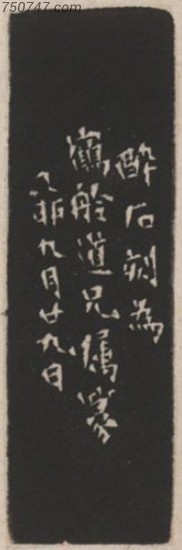 750747.com
醉石刻為
鶴舲道兄僞篆
乙卯九月廿九日